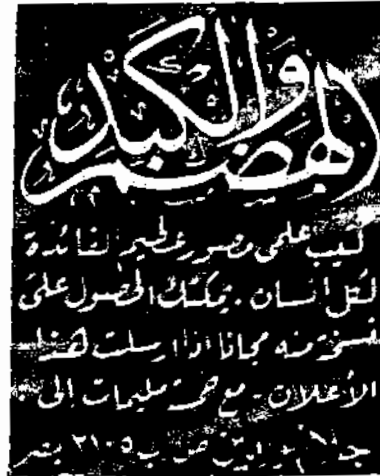 الهضم والكبد
كتيب علمى مصور عظيم الفائدة
لكل انسان . يمكنك الحصول على
نسخة منه مجانا اذا ارسلت هذا
الأعلان - مع خمسة مليمات الى
ص ب ٢١٠٥ بمصر